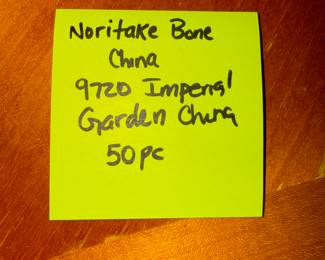 Noritake Bone
China
9720 Imperial
Garden China
50 pc